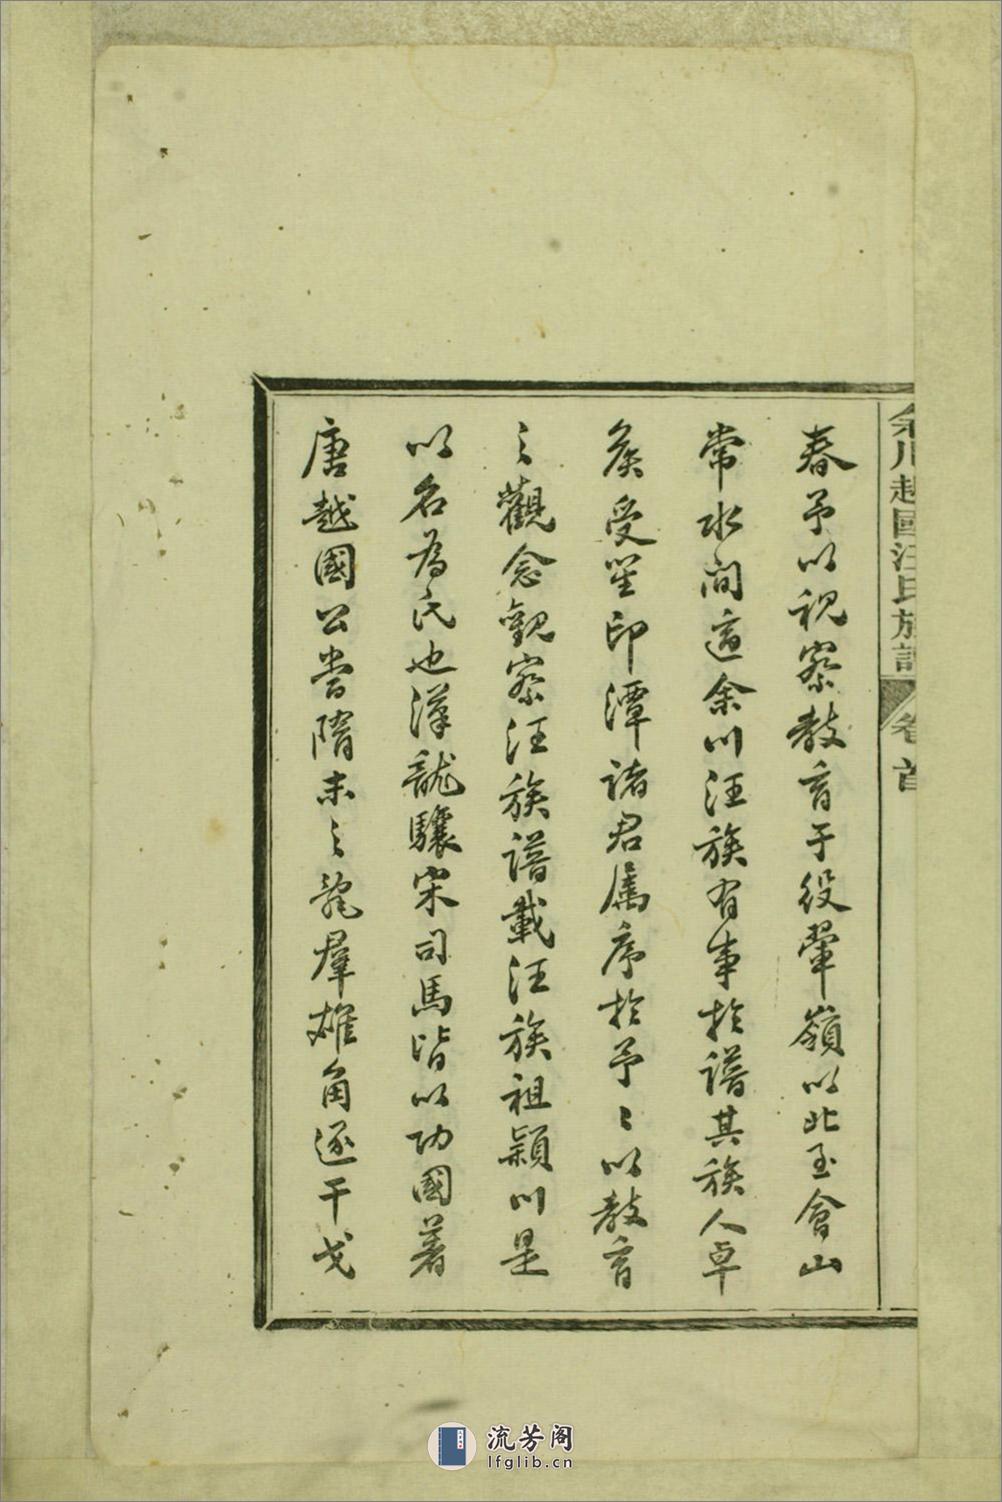 余川越國汪氏族譜 卷首
春予以視察教育于役翬嶺以北至會山
常水間適余川汪族有事於譜其族人卓
侯受笙印潭諸君属序於予〻以教育
之觀念觀察汪族譜載汪族祖穎川是
以名為氏也漢龍驤宋司馬皆以功國著
唐越國公當隋末之亂羣雄角逐干戈
流芳阁
lfglib.cn